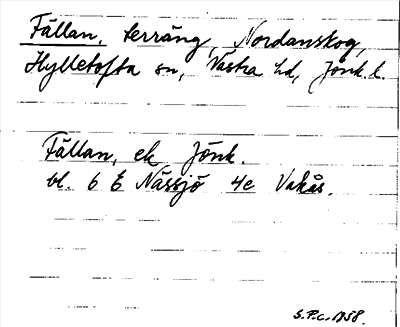 Fällan, terräng, Nordanskog,
Hylletofta sn, Västra hd, Jönk. l.
Fällan, ek Jönk.
bl. 6 E Nässjö 4e Vakås.
S.P.c. 1958.